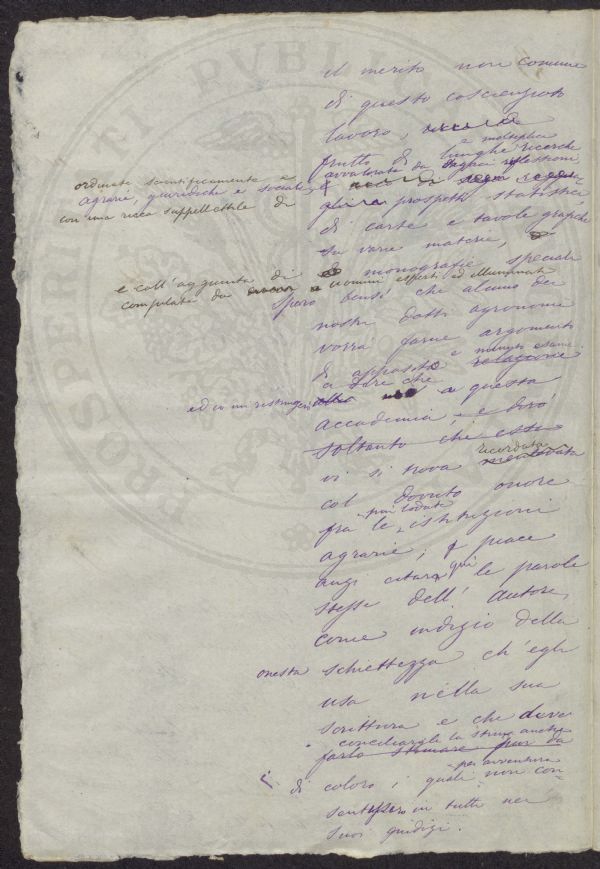 il merito non comune
di questo coscienzioso
lavoro,
frutto di lunghe e molteplici ricerche
avvalorate da riflessioni,
ordinate scientificamente e
agrarie, giuridiche e sociali e
con una ricca suppellettile di
prospetti statistici,
di carte e tavole grafiche
su varie materie,
e coll'aggiunta di monografie speciali
compilate da uomini esperti ed illuminati
spero bensì che alcuno dei
nostri dotti agronomi
vorrà farne argomento
di apposito e minuto esame
ed io mi restringerò a dire che a questa
accademia, e dirò
soltanto che essa
vi si trova ricordata
col dovuto onore
fra le più lodate istituzioni
agrarie; e piace
anzi citare qui le parole
stesse dell'autore,
come indizio della
onesta schiettezza ch'egli
usa nella sua
scrittura e che deve
conciliargli la stima anche
farlo stimare pur da
di coloro, i quali per avventura non con-
sentissero in tutti nei
suoi giudizi.